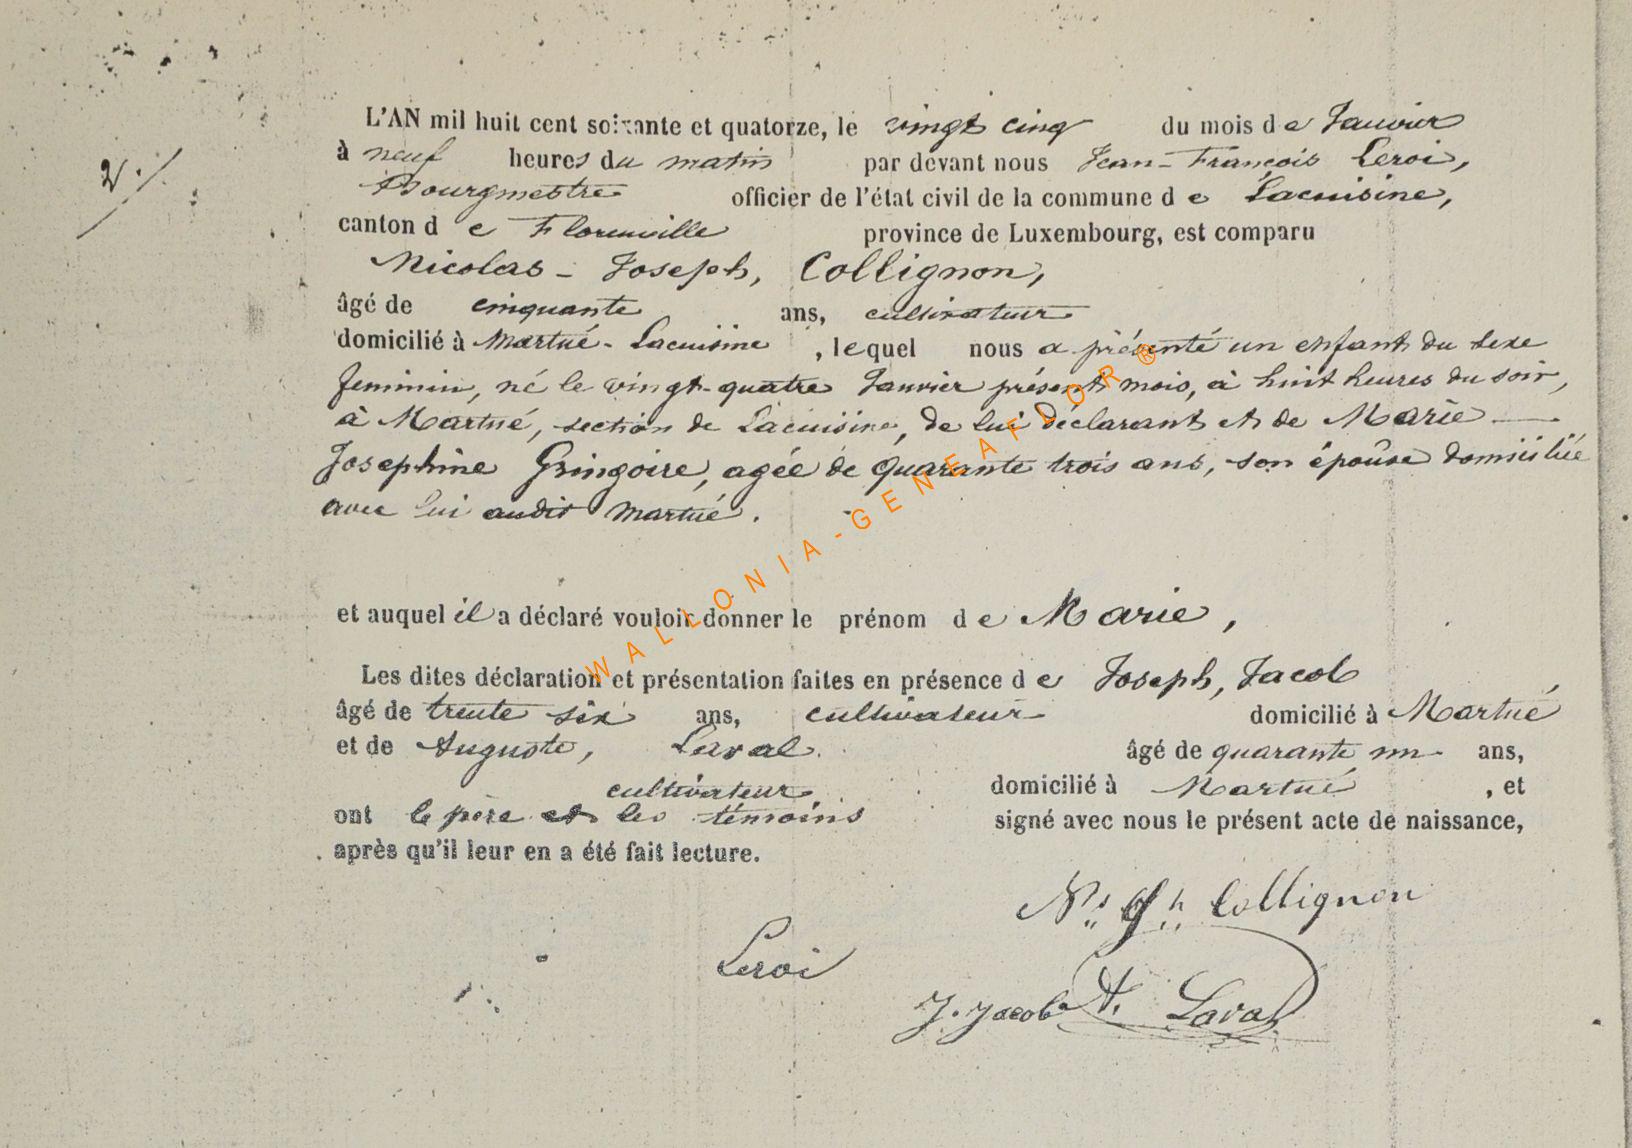 2./.
L'AN mil huit cent soixante et quatorze, le vingt cinq du mois de Janvier
à neuf heures du matin par devant nous Jean-François Leroi,
Bourgmestre officier de l'état civil de la commune de Lacuisine,
canton de Florenville province de Luxembourg, est comparu
Nicolas-Joseph, Collignon,
âgé de cinquante ans, cultivateur
domicilié à Martué-Lacuisine, lequel nous a présenté un enfant du sexe
feminin, né le vingt-quatre Janvier présent mois, à huit heures du soir,
à Martué, section de Lacuisine, de lui déclarant et de Marie —
Josephine Gringoire, agée de quarante trois ans, son épouse domiciliée
avec lui audit Martué.
et auquel il a déclaré vouloir donner le prénom de Marie,
Les dites déclaration et présentation faites en présence de Joseph, Jacob
âgé de trente six ans, cultivateur domicilié à Martué
et de Auguste, Laval. âgé de quarante un ans,
cultivateur domicilié à Martué, et
ont le père et les témoins signé avec nous le présent acte de naissance,
après qu'il leur en a été fait lecture.
Ns Jh Collignon
Leroi
J. Jacob A. Laval
WALLONIA-GENEAFLOR®